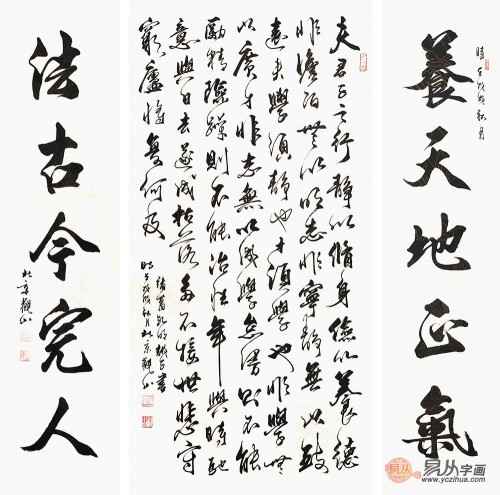 養天地正氣
夫君子之行靜以脩身儉以養德
非澹泊無以明志非寧靜無以致
遠夫學須靜也才須學也非學無
以廣才非志無以成學怠慢則不能
勵精險躁則不能冶性年與時馳
意與日去遂成枯落多不接世悲守
窮廬將復何及
諸葛孔明誡子書
秋月北京觀山
法古今完人
北京觀山
易从字画
www.yczihua.com